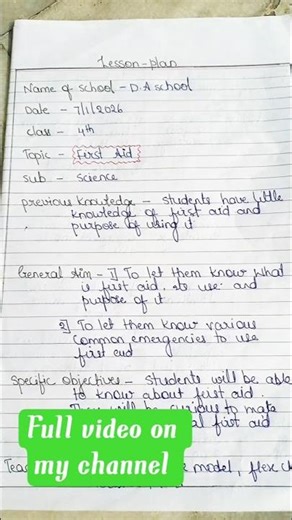 Lesson-plan
Name of school - D.A school
Date - 7/1/2026
class - 4th
Topic - First Aid
Sub - Science
previous knowledge - students have little
knowledge of first aid and
purpose of using it
General Aim - 1] To let them know what
is first aid, its use and
purpose of it
2] To let them know various
common emergencies to use
first aid
Specific objectives - students will be able
to know about first aid.
They will be curious to make
first aid
Full video on
my channel
model, flex